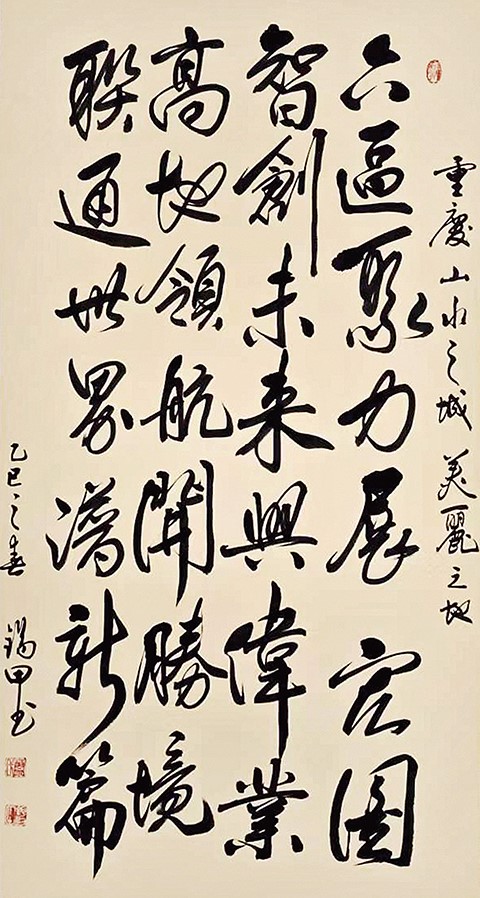 重慶山水之城 美麗之地
六區聚力展宏圖
智創未來興偉業
高地領航開勝境
聯通世界譜新篇
乙巳之春 甲书